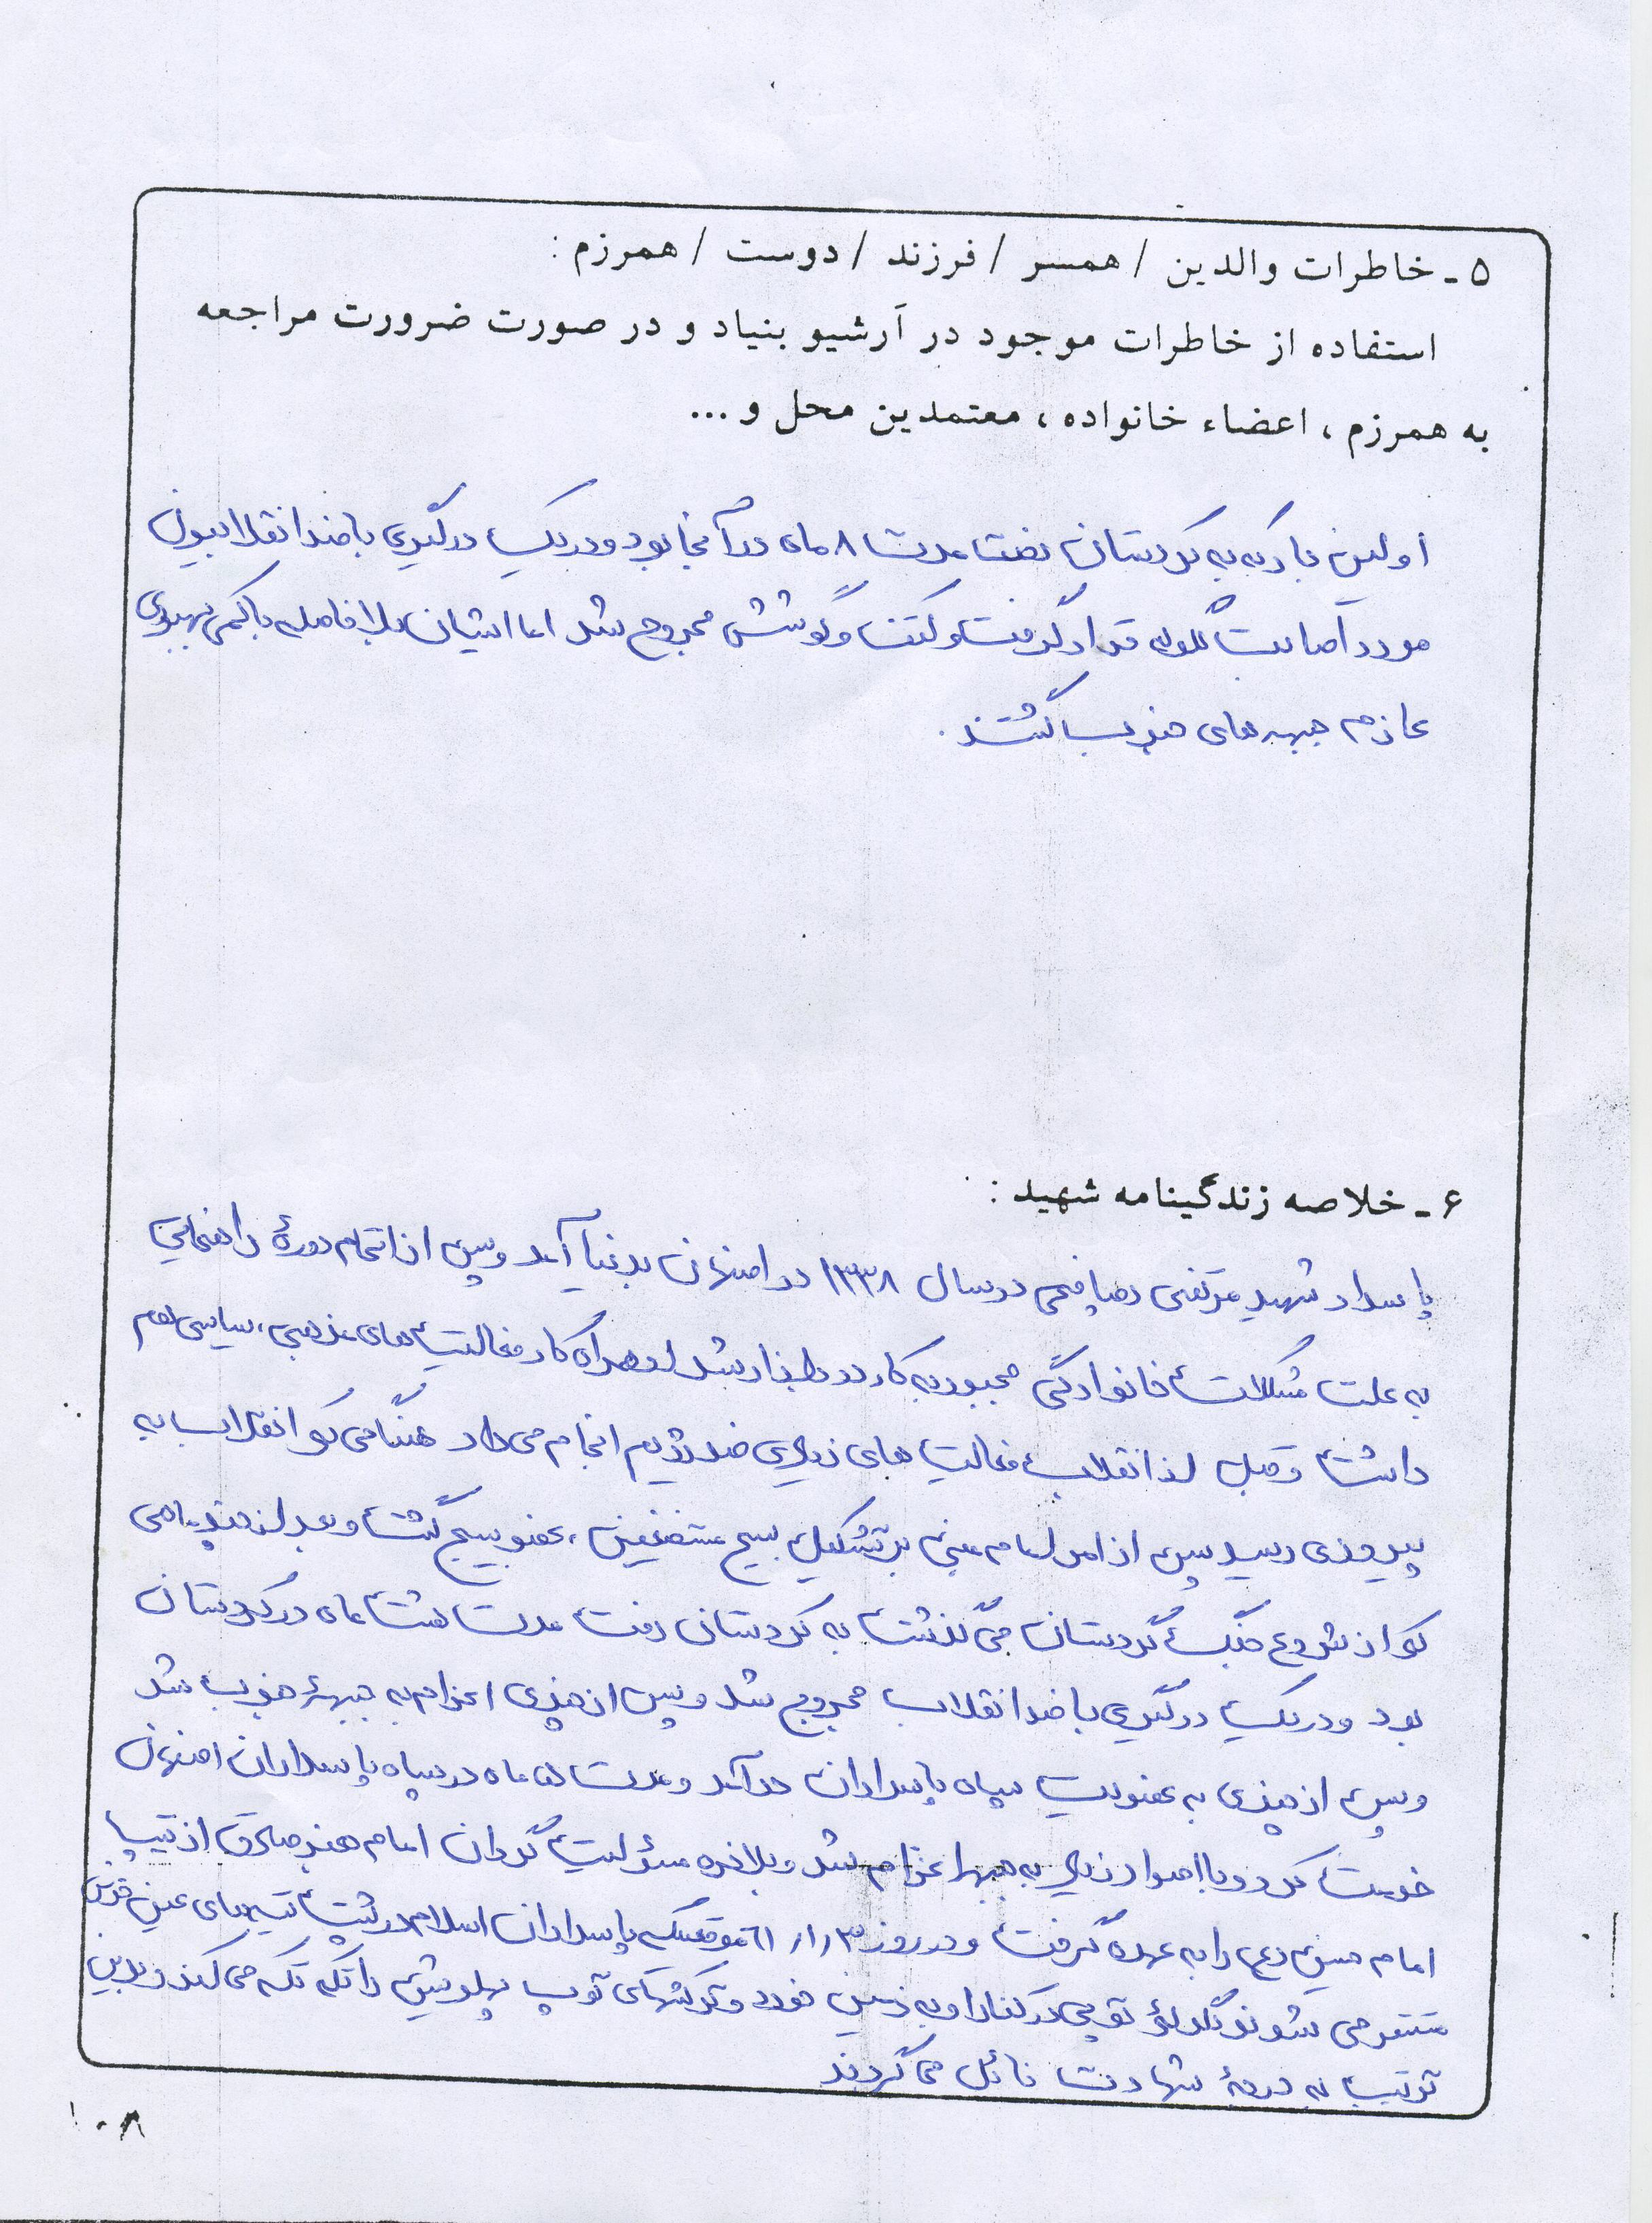 ۵ - خاطرات والدین / همسر / فرزند / دوست / همرزم :
استفاده از خاطرات موجود در آرشیو بنیاد و در صورت ضرورت مراجعه
به همرزم ، اعضاء خانواده ، معتمدین محل و ...
اولین بار که به کردستان رفت مدت ۸ ماه در آنجا بود و در یک درگیری با ضد انقلابیون
مورد اصابت گلوله قرار گرفت و کتف و گوشش مجروح شد اما ایشان بلافاصله با کمی بهبودی
عازم جبهه های جنوب گشتند .
۶ - خلاصه زندگینامه شهید :
پاسدار شهید مرتضی رضا در سال ۱۳۳۸ در اصفهان بدنیا آمد و پس از اتمام دورهٔ راهنمایی
به علت مشکلات خانوادگی مجبور به کار در بازار شد و همراه کار فعالیت های مذهبی ، سیاسی هم
داشت و قبل از انقلاب فعالیت های زیادی ضد رژیم انجام می داد هنگامی که انقلاب به
پیروزی رسید پس از امر امام مبنی بر تشکیل بسیج مستضعفین ، عضو بسیج گشت و بعد از چند ماهی
که از شروع جنگ کردستان می گذشت به کردستان رفت مدت هشت ماه در کردستان
بود و در یک درگیری با ضد انقلاب مجروح شد و پس از چندی اعزام به جبههٔ جنوب شد
و پس از چندی به عضویت سپاه پاسداران درآمد و مدت ۵ ماه در سپاه پاسداران اصفهان
خدمت کرد و با اصرار زیاد به جبهه اعزام شد و بلاخره مسؤلیت گردان امام جعفر صادق از تیپ
امام حسین (ع) را به عهده گرفت و در روز ۳ /۱/ ۶۱ موقعیکه پاسداران اسلام در پشت تپه های عین خوش
مستقر می شوند گلولهٔ توپی در کنار او به زمین خورد و ترکشهای توپ پهلویش را تکه تکه می کند و بدین
ترتیب به درجهٔ شهادت نائل می گردند
۱۰۸